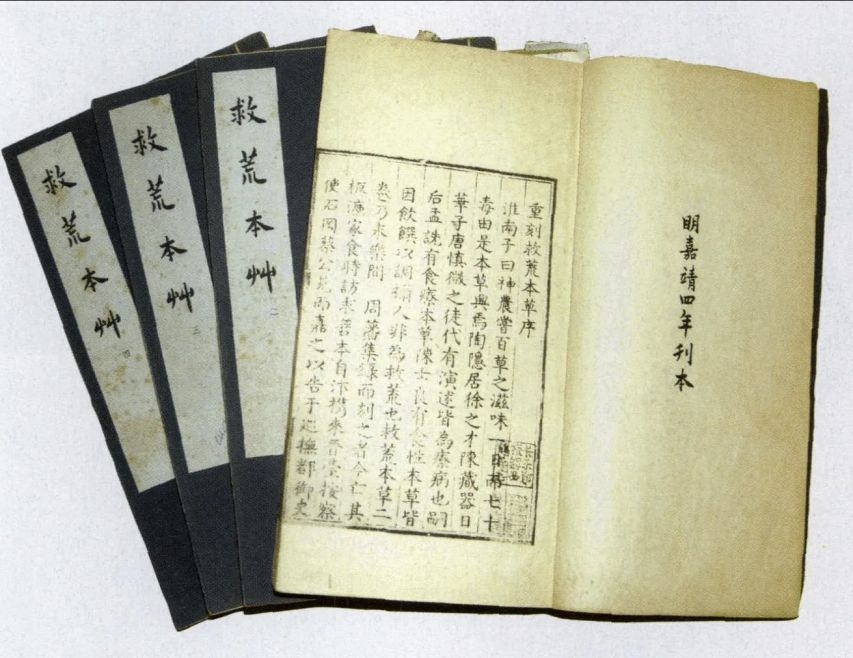 明嘉靖四年刊本
重刻救荒本草序
淮南子曰神農嘗百草之滋味一日而七十
毒由是本草興焉陶隱居徐之才陳藏器日
華子唐慎微之徒代有演述皆為療病也嗣
后孟詵有食療本草陳士良有食性本草皆
因飲饌以調攝人非為救荒也救荒本草二
卷乃永樂間 周藩集錄而刻之者今亡其
板濂家食時訪求善本自汴携來晉臺按察
使石岡蔡公見而嘉之以告于廵撫都御史
救荒本艸 二
救荒本艸 三
救荒本艸 四